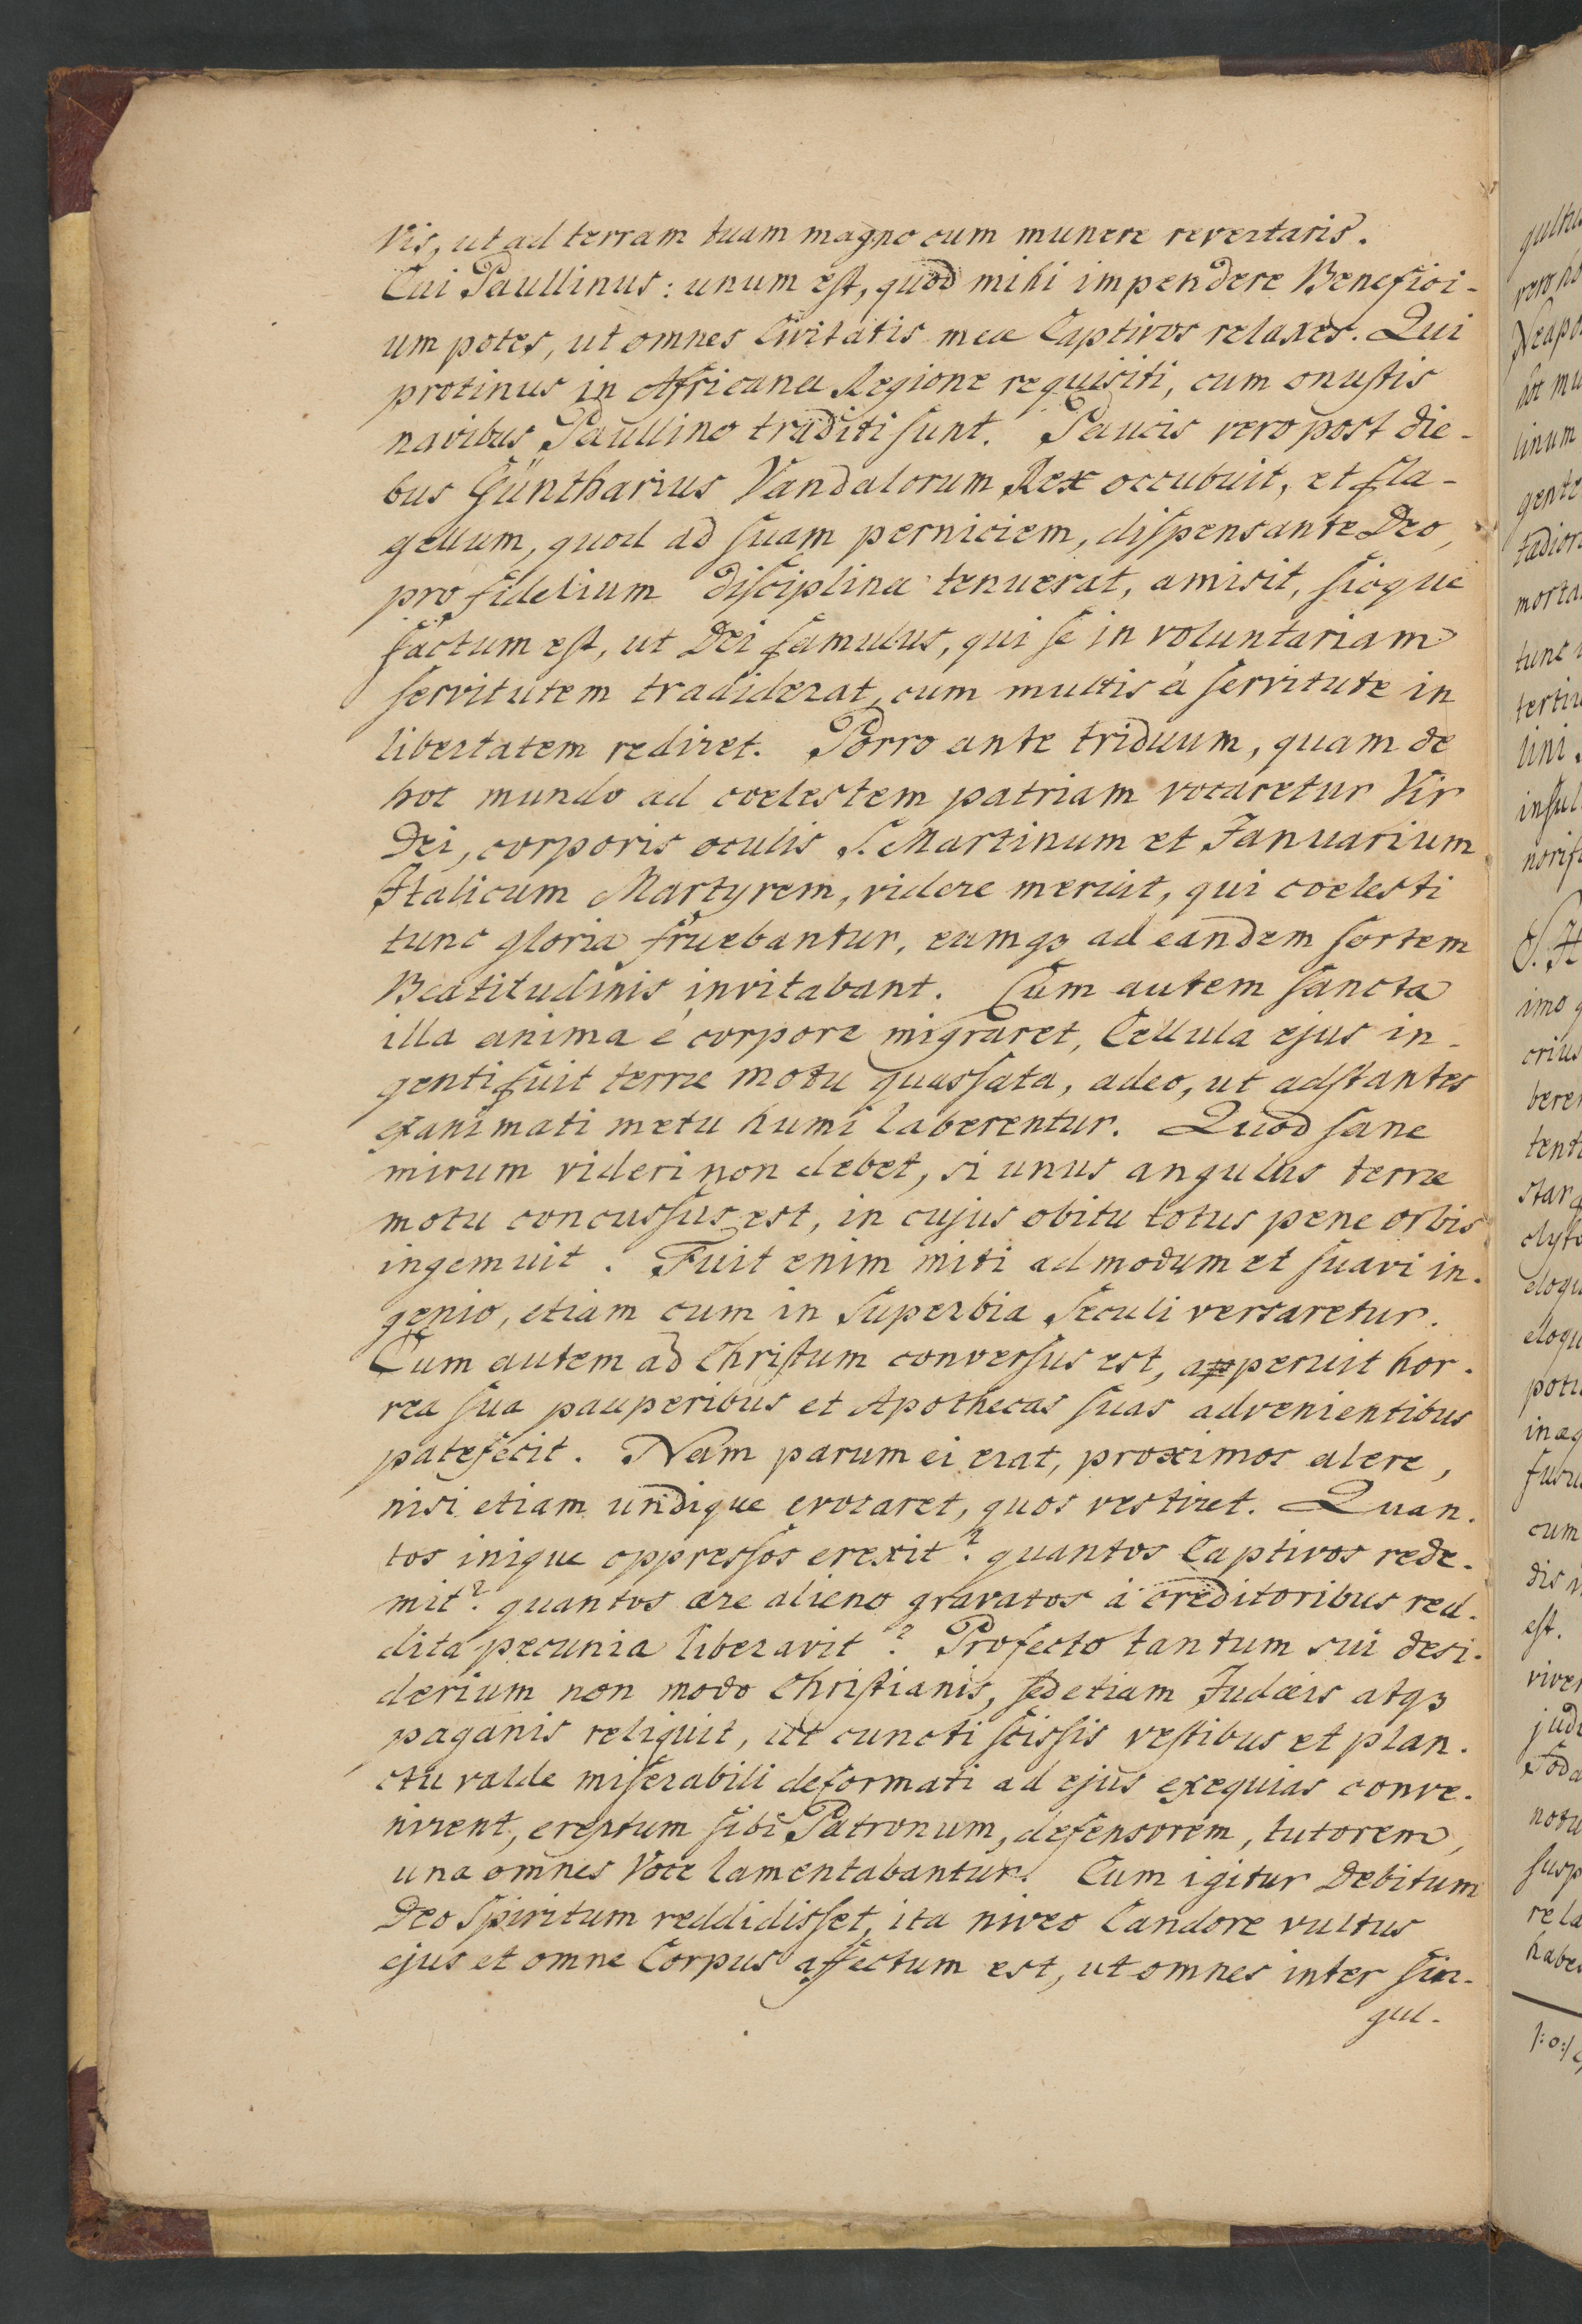 Vis, ut ad terram tuam magno cum munere revertaris.
Cui Paullinus: unum eſt, quod mihi impendere Benefici-
um potes, ut omnes Civitatis meæ Captivos relaxes. Qui
protinus in Africana Regione requisiti, cum onuſtis
navibus Paullino traditi ſunt. Paucis vero post die-
bus Güntharius Vandalorum Rex occubuit, et fla-
gellum, quod ad ſuam perniciem, diſpensante Deo,
pro fidelium diſciplina tenuerat, amisit, ſicque
factum eſt, ut Dei famulus, qui ſe in voluntariam
ſervitutem tradiderat, cum multis à ſervitute in
libertatem rediret. Porro ante triduum, quam de
hoc mundo ad coelestem patriam vocaretur Vir
Dei, corporis oculis S. Martinum et Januarium
Italicum Martyrem, videre meruit, qui coelesti
tunc gloria fruebantur, eumqꝫ ad eandem ſortem
Beatitudinis invitabant. Cum autem ſancta
illa anima è corpore migraret, Cellula ejus in-
genti fuit terræ motu quasſata, adeo, ut adſtantes
exanimati metu humi laberentur. Quod ſane
mirum videri non debet, si unus angulus terræ
motu concusſus est, in cujus obitu totus pene orbis
ingemuit. Fuit enim miti admodum et ſuavi in-
genio, etiam cum in Superbia Seculi versaretur.
Cum autem ad Chriſtum converſus est, apperuit hor-
rea ſua pauperibus et Apothecas ſuas advenientibus
patefecit. Nam parum ei erat, proximos alere,
nisi etiam undique evocaret, quos vestiret. Quan-
tos inique oppresſos erexit? quantos Captivos rede-
mit? quantos ære alieno gravatos à creditoribus red-
dita pecunia liberavit? Profecto tantum sui desi-
derium non modo Chriſtianis, ſed etiam Judæis atqꝫ
paganis reliquit, ut cuncti ſcisſis veſtibus et plan-
ctu valde miſerabili deformati ad ejus exequias conve-
nirent, ereptum ſibi Patronum, defensorem, tutorem,
una omnes Voce lamentabantur. Cum igitur Debitum
Deo Spiritum reddidisſet, ita niveo Candore vultus
ejus et omne Corpus affectum est, ut omnes inter ſin-
gul-